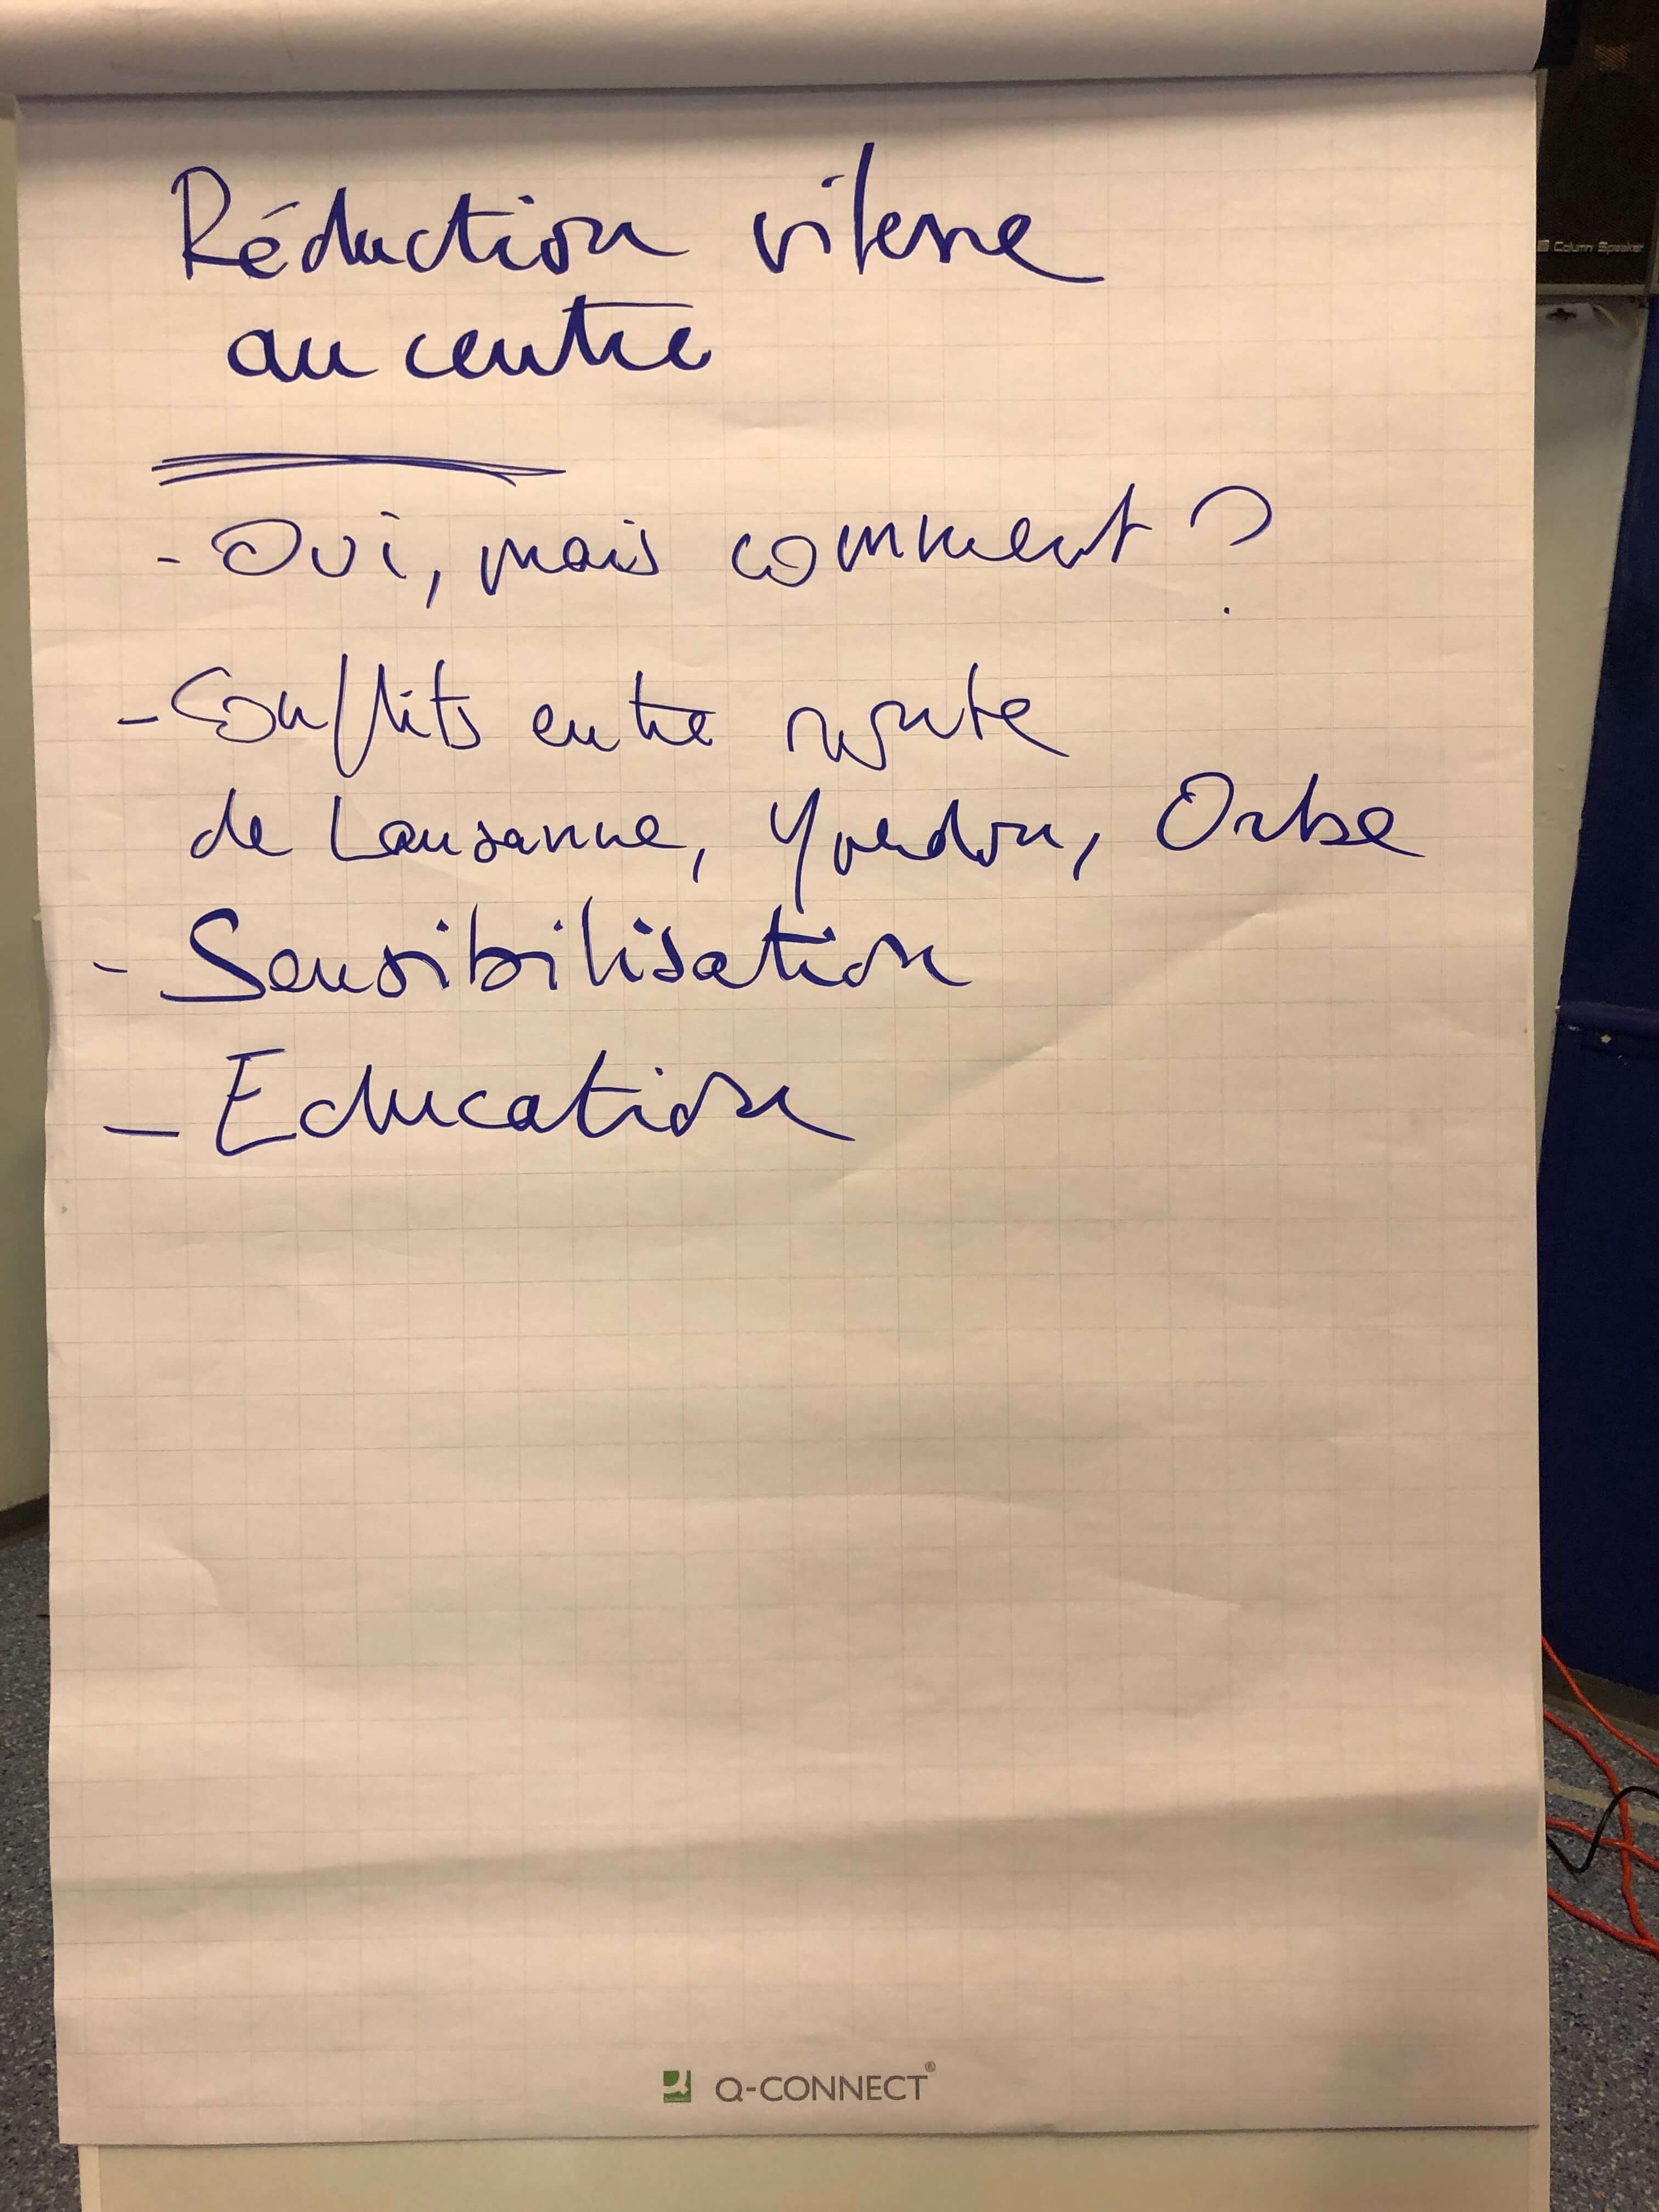 Réduction vitesse
au centre
- Oui, mais comment ?
- Conflits entre route
de Lausanne, Yverdon, Orbe
- Sensibilisation
- Education
Q-CONNECT®
Column Speaker